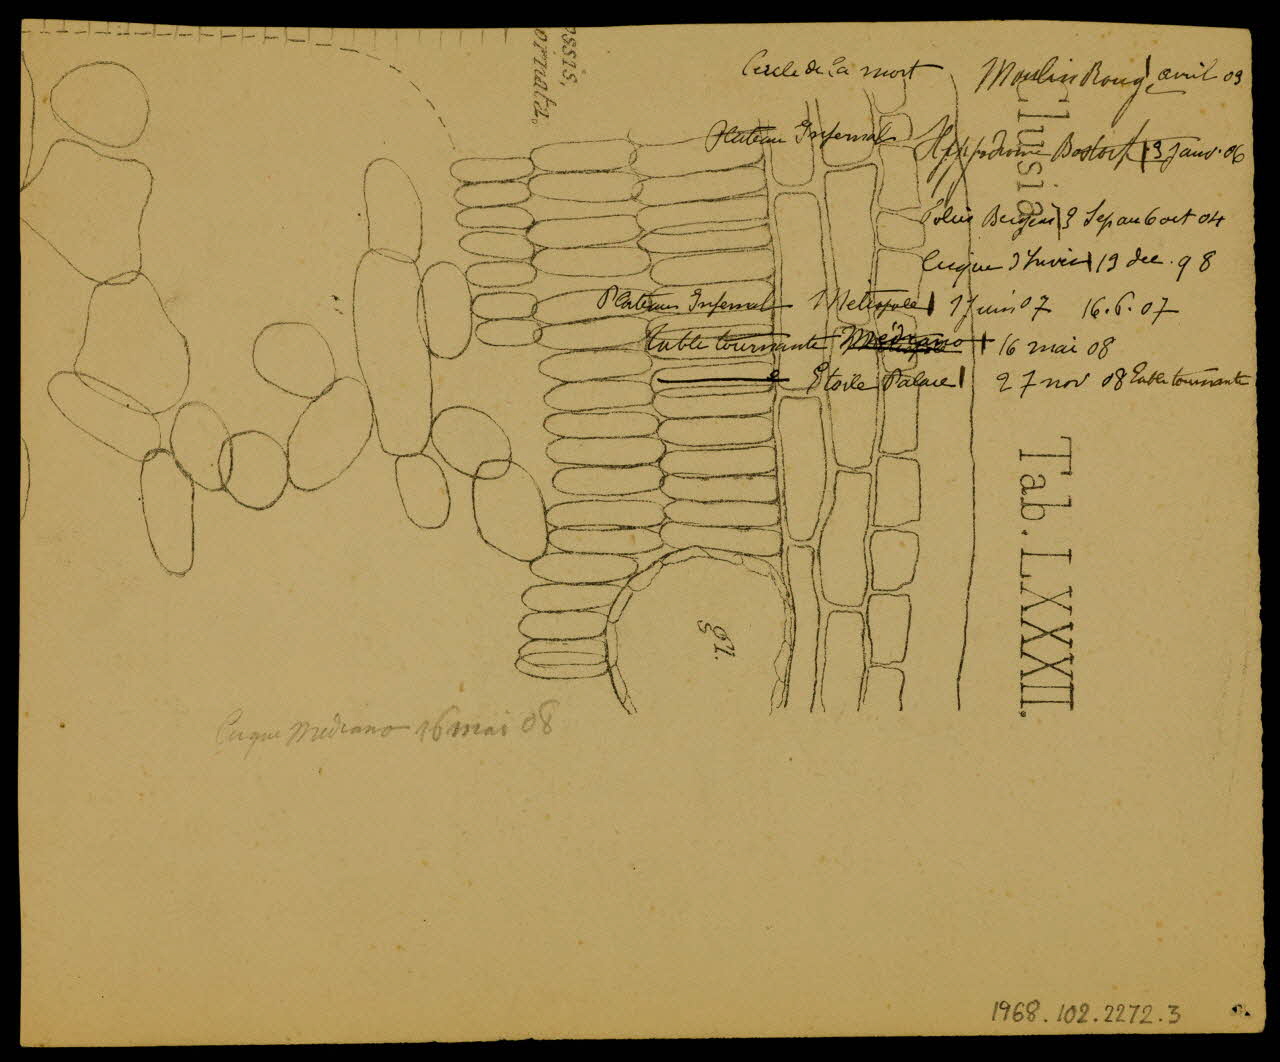 Cercle de la mort Moulin Roug avril 09
Plateau Infernal Hippodrome Bostock 13 Janv. 06
Folies Bergeres 3 Sep au 6 oct 04
Cirque d'hiver 19 dec. 98
Plateau Infernal Metropole 1 Juin 07 16.6.07
table tournante Médrano 16 mai 08
Etoile Palace 27 nov 08 table tournante
ossis,
ornata.
Clusia
Tab. LXXXII.
gl.
s
Cirque Medrano 16 mai 08
1968.102.2272.3